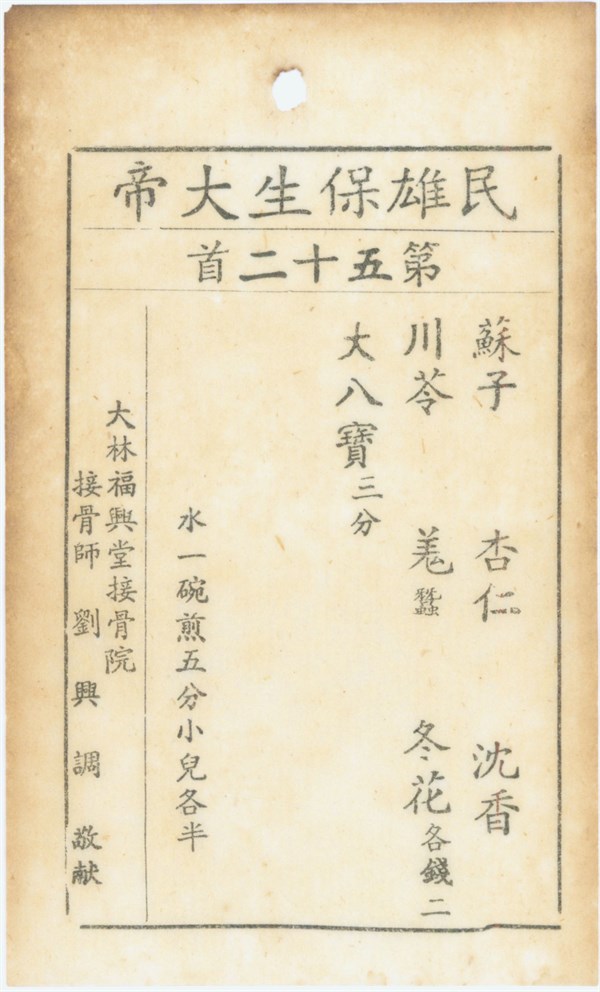 民雄保生大帝
第五十二首
蘇子 杏仁 沈香
川苓 羗蠶 冬花各錢二
大八寶三分
水一碗煎五分小兒各半
大林福興堂接骨院
接骨師 劉興調 敬献